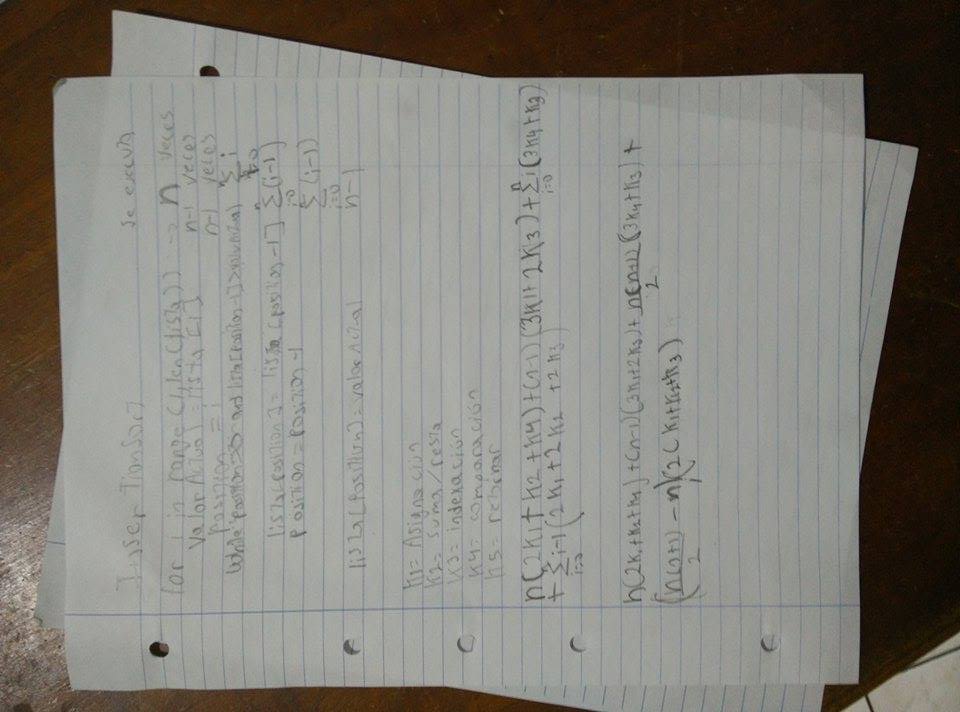 InsertionSort se ejecuta
for i in range (1,len(lista)) -> n veces
Valor Actual = lista[i] n-1 veces
Position = i n-1 veces
While Position>0 and lista[position-1]>valorActual n∑i=0 i
lista[position] = lista [position-1] n∑i=0 (i-1)
Position = Position-1 n∑i=0 (i-1)
lista[Position]=valorActual n-1
K1= Asignación
K2= suma/resta
K3= indexación
K4= comparación
K5= retornar
n(2K1+K2+K4)+(n-1)(3K1+2K3)+n∑i=0 i(3K4+K3)
+n∑i=0 i-1(2K1+2K2+2K3)
n(2K1+K2+K4)+(n-1)(3K1+2K3)+n(n+1)/2(3K4+K3)+
(n(n+1)/2 - n)(2(K1+K2+K3)